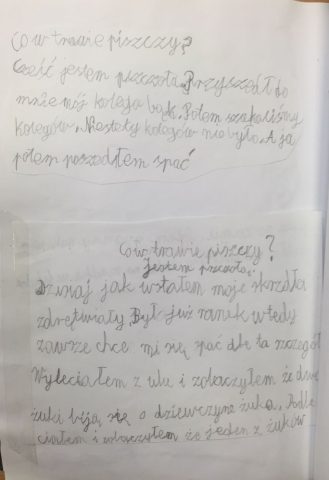 Co w trawie piszczy?
Cześć jestem pszczoła. Przyszedł do
mnie mój kolega bąk. Potem szukaliśmy
kolegów. Niestety kolegów nie było. A ja
potem poszedłem spać
Co w trawie piszczy?
Jestem pszczołą.
Dzisiaj jak wstałem moje skrzdła
zdrętwiały. Był już ranek wtedy
zawsze chce mi się spać ale to szczegół
Wyleciałem z ulu i zobaczyłem że dwa
żuki biją się o dziewczynę żuka. Podle
ciałem i zobaczyłem że jeden z żuków